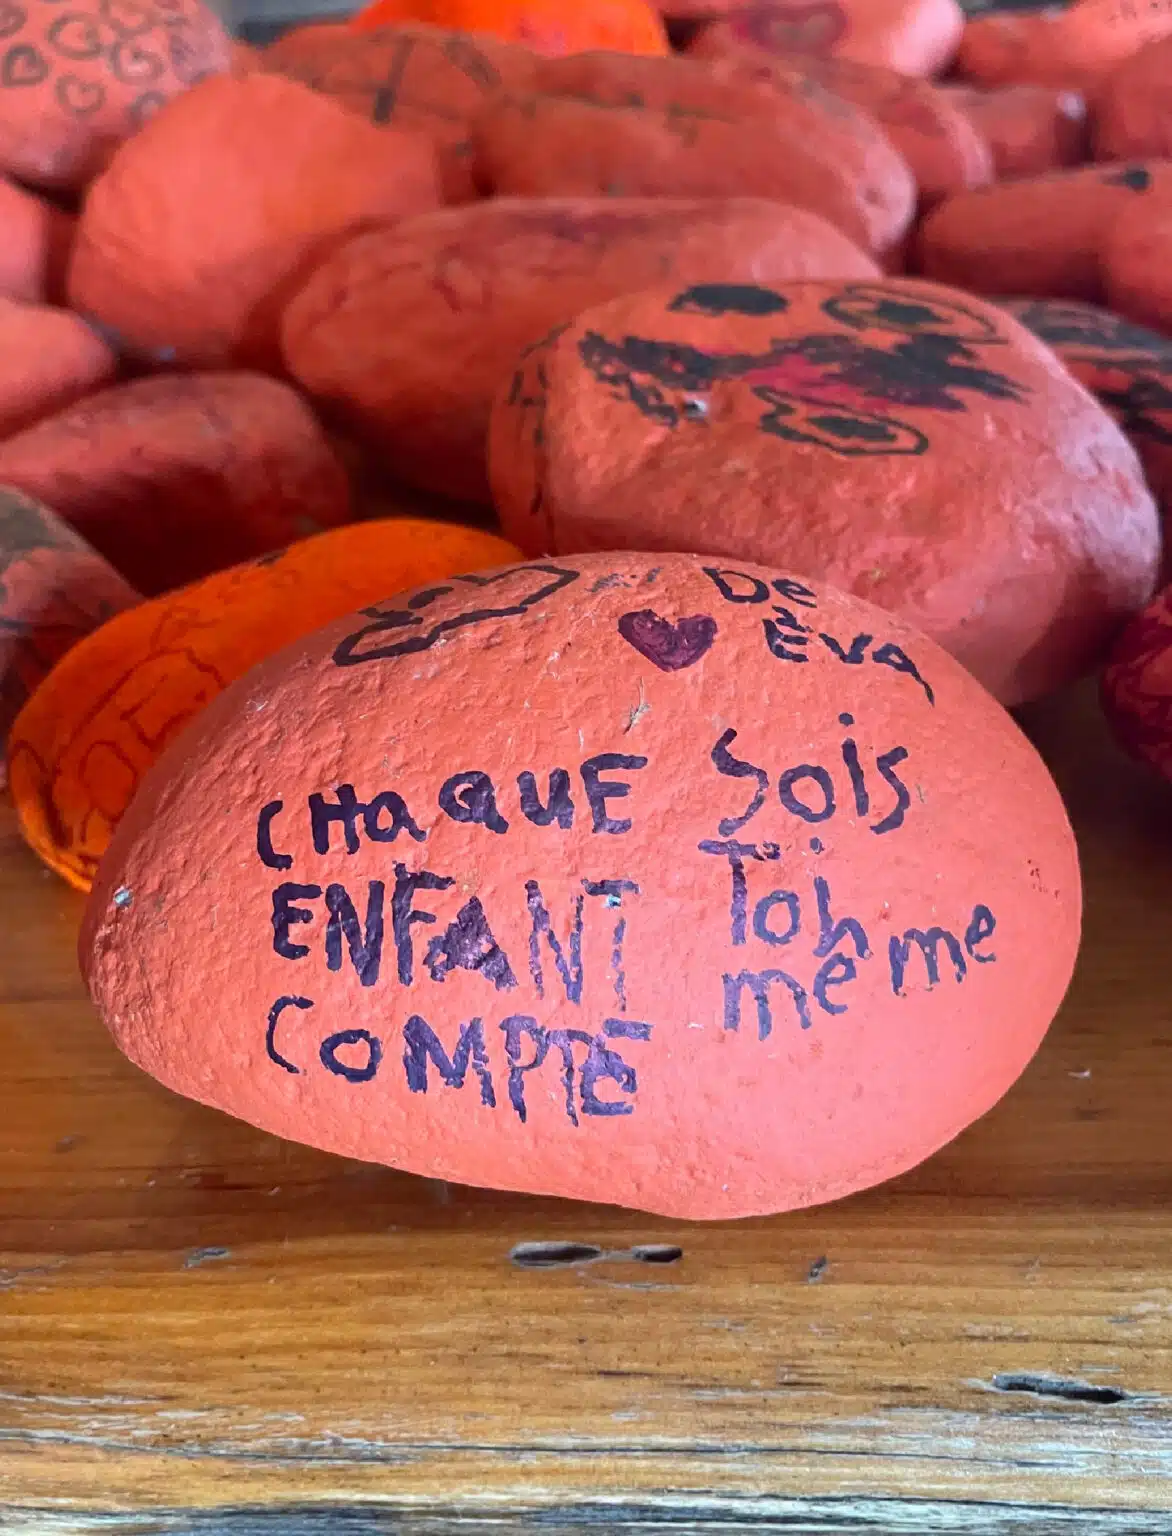 De
Èva
CHaQUE
ENFANT
COMPTE
Sois
Toi
même me